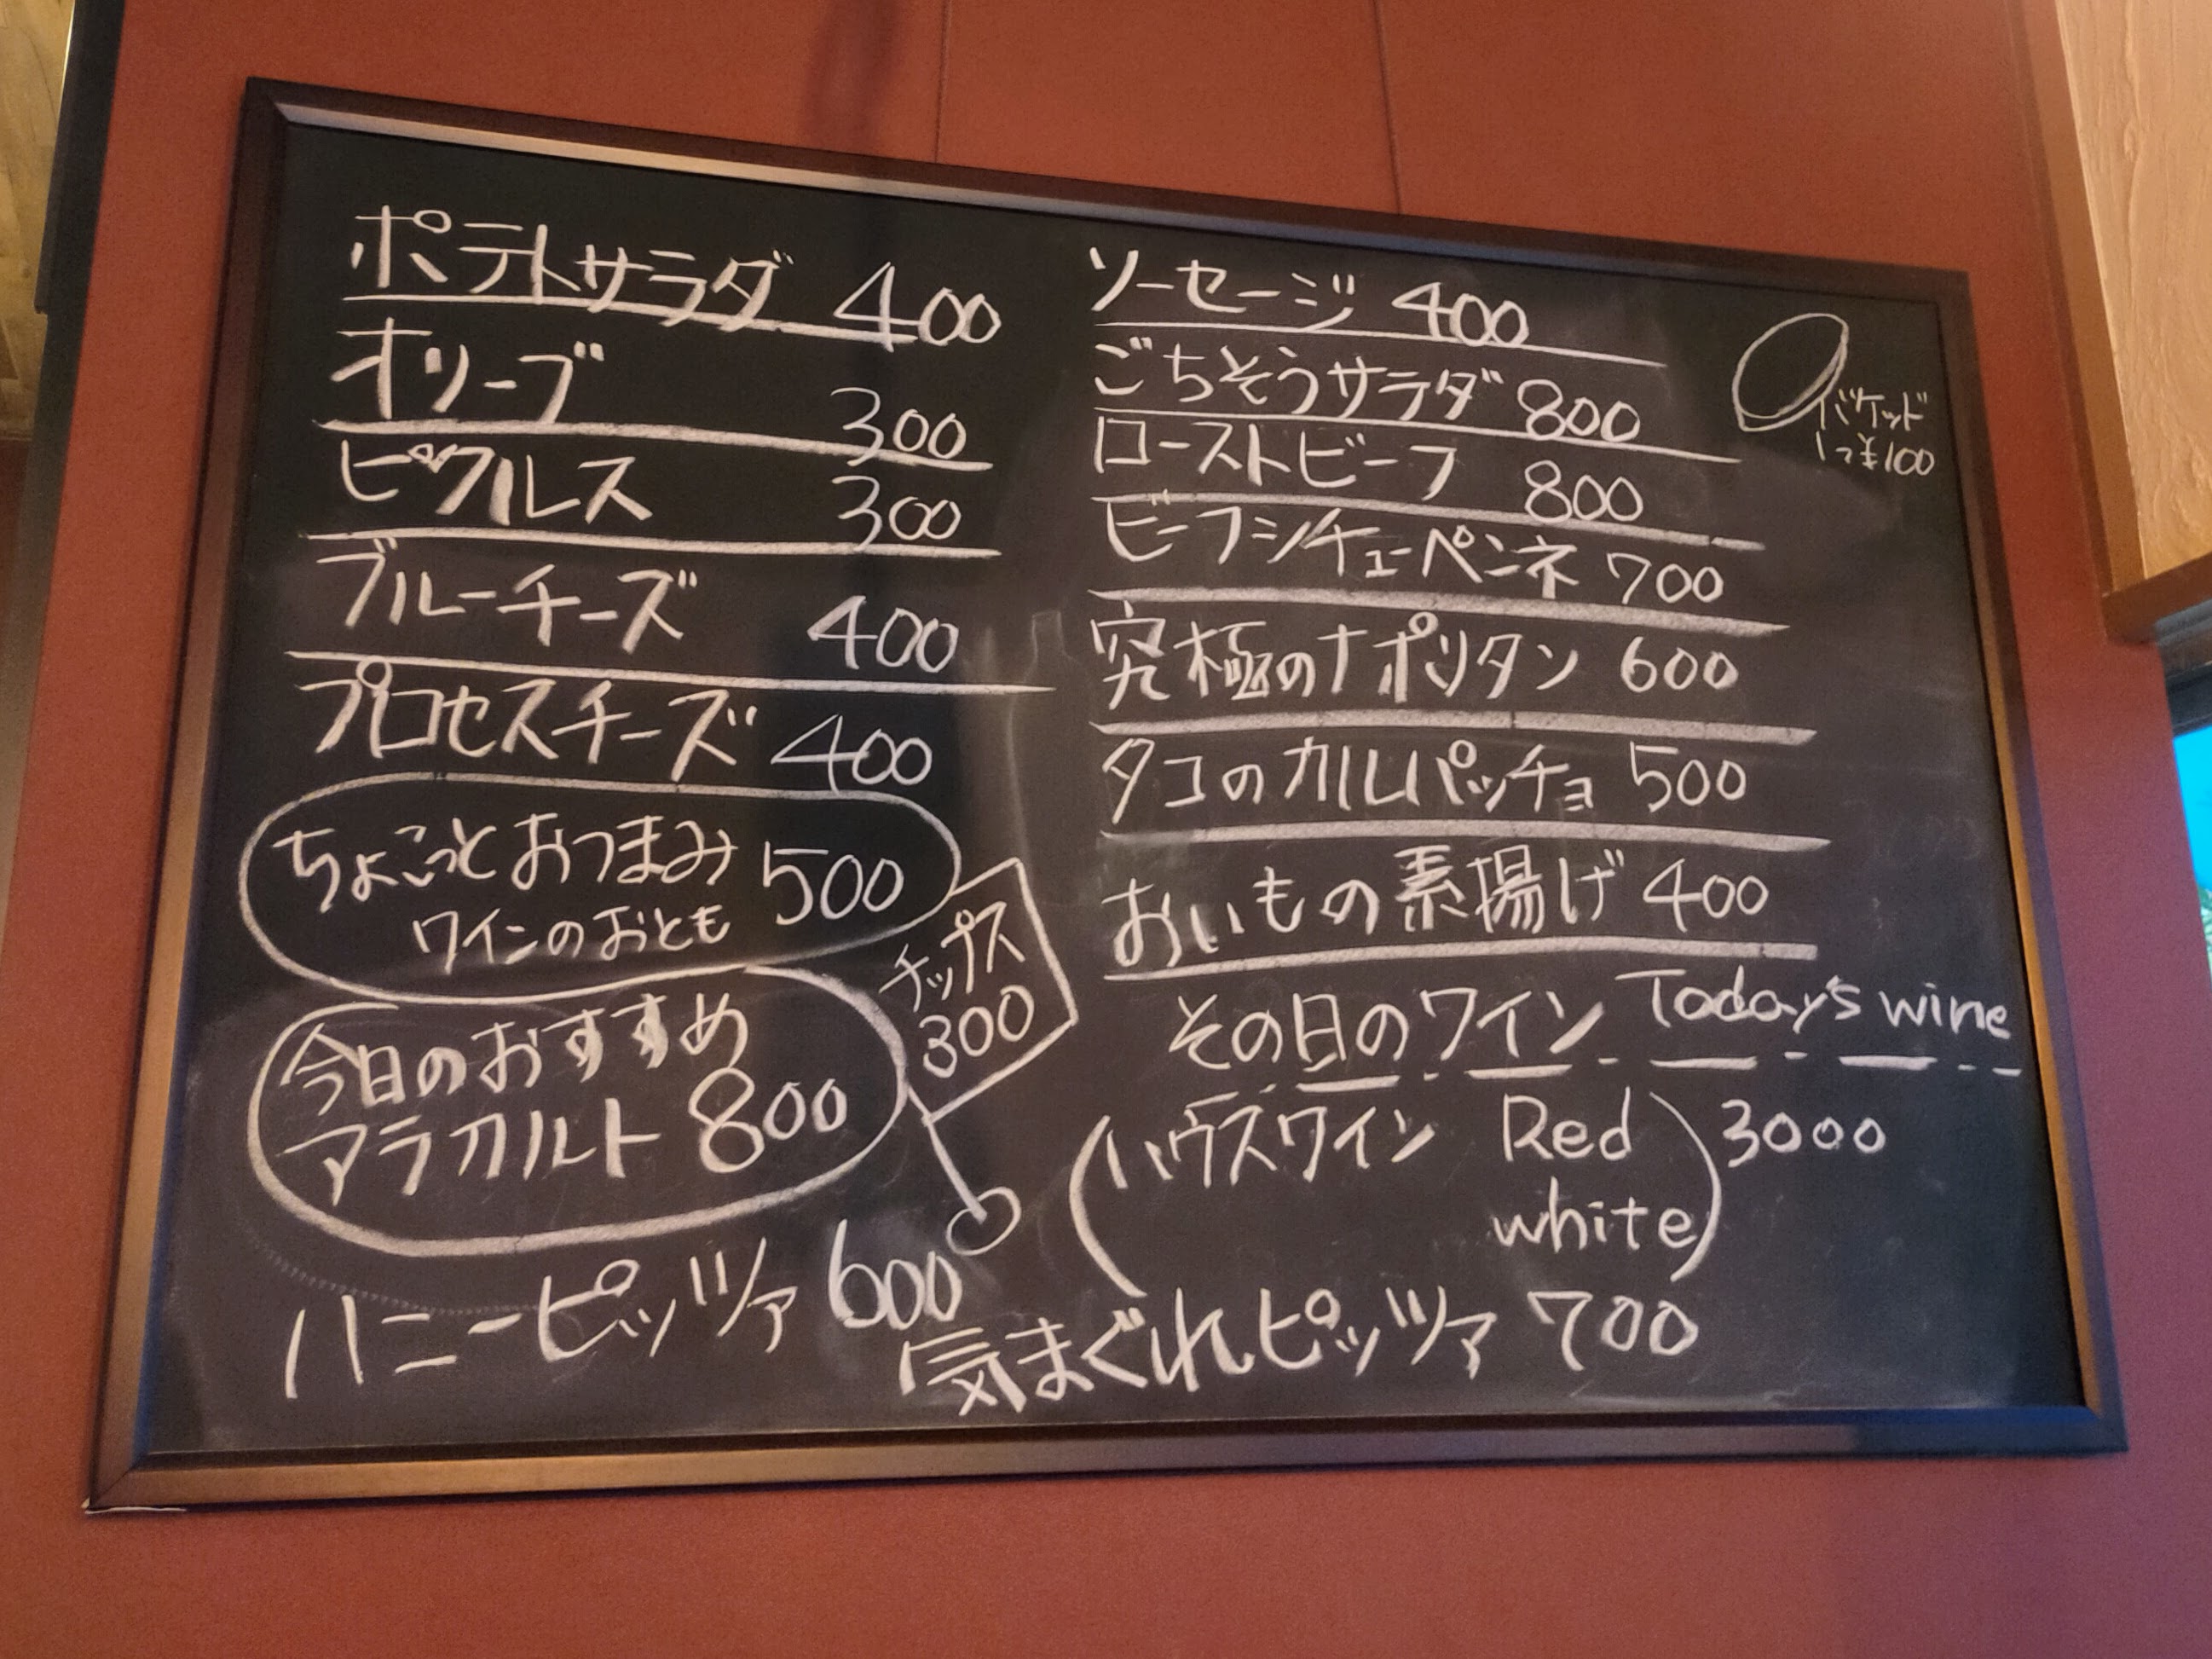 ポテトサラダ 400
オリーブ 300
ピクルス 300
ブルーチーズ 400
プロセスチーズ 400
ちょこっとおつまみ 500
ワインのおとも
チップス
300
今日のおすすめ
アラカルト 800
ハニーピッツァ 600
ソーセージ 400
ごちそうサラダ 800
ローストビーフ 800
ビーフシチューペンネ 700
究極のナポリタン 600
タコのカルパッチョ 500
おいもの素揚げ 400
その日のワイン Today's wine
(ハウスワイン Red
white) 3000
気まぐれピッツァ 700
バケッド
1つ¥100